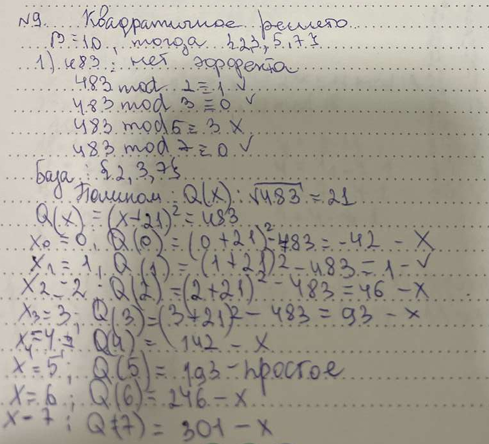 №9. Квадратичное решето
B=10, тогда {2,3,5,7}
1) 483: нет эффекта
483 mod 2≡1 ✓
483 mod 3≡0 ✓
483 mod 5≡3 X
483 mod 7≡0 ✓
База: {2,3,7}
Полином: Q(x): √483=21
Q(x)=(x+21)²=483
x₀=0, Q(0)=(0+21)²-483=-42 - X
x₁=1, Q(1)=(1+21)²-483=1 - ✓
x₂=2; Q(2)=(2+21)²-483=46 - X
x₃=3; Q(3)=(3+21)²-483=93 - x
x₄=4; Q(4)=142 - X
x=5; Q(5)=193 - простое
x=6; Q(6)=246 - X
x=7; Q(7)=301 - X